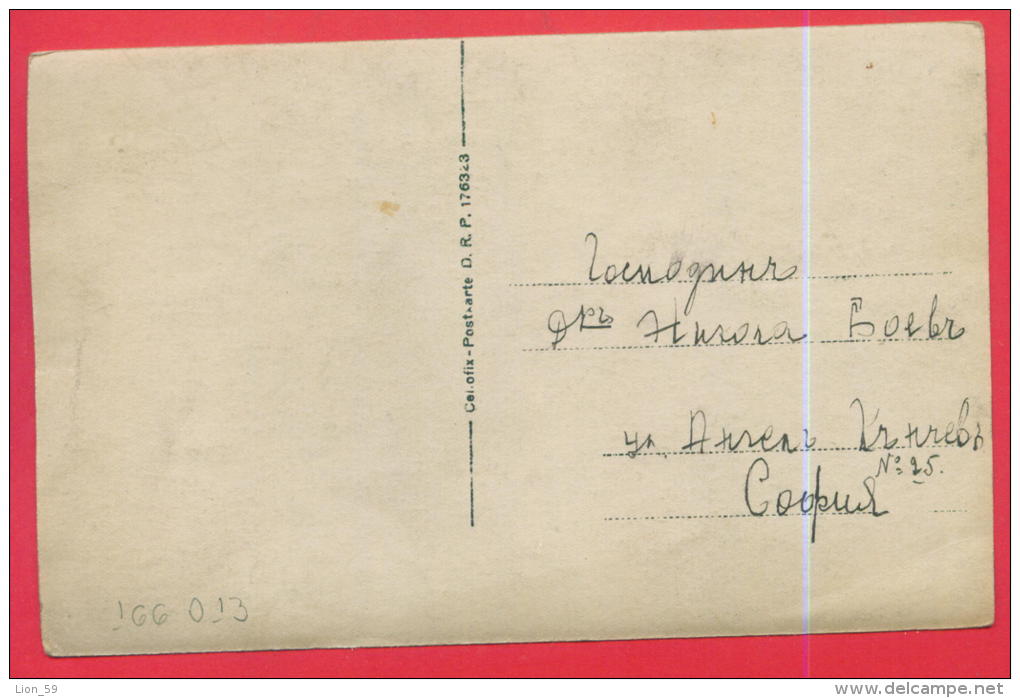 Cellofix-Postkarte D. R. P. 176323
Господинъ
Дръ Никола Боевъ
ул. Ангелъ Кънчевъ
№ 25.
София
166 013
Lion_59
www.delcampe.net